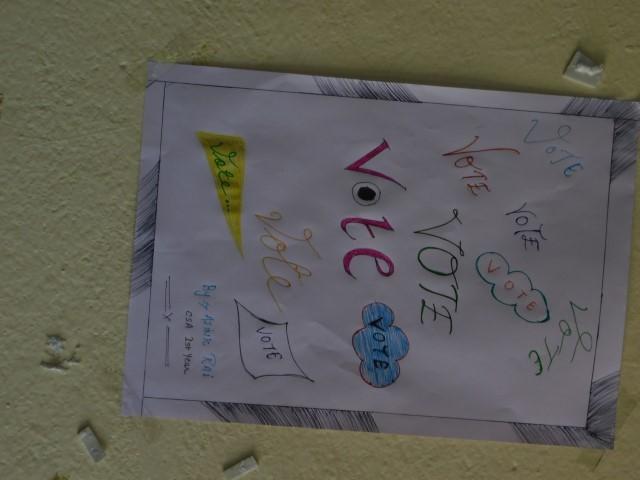 VOTE
VOTE
VOTE
VOTE
VOTE
VOTE
Vote
VOTE
Vote
VOTE
Vote...
By:- Rai
CSA 1st Year